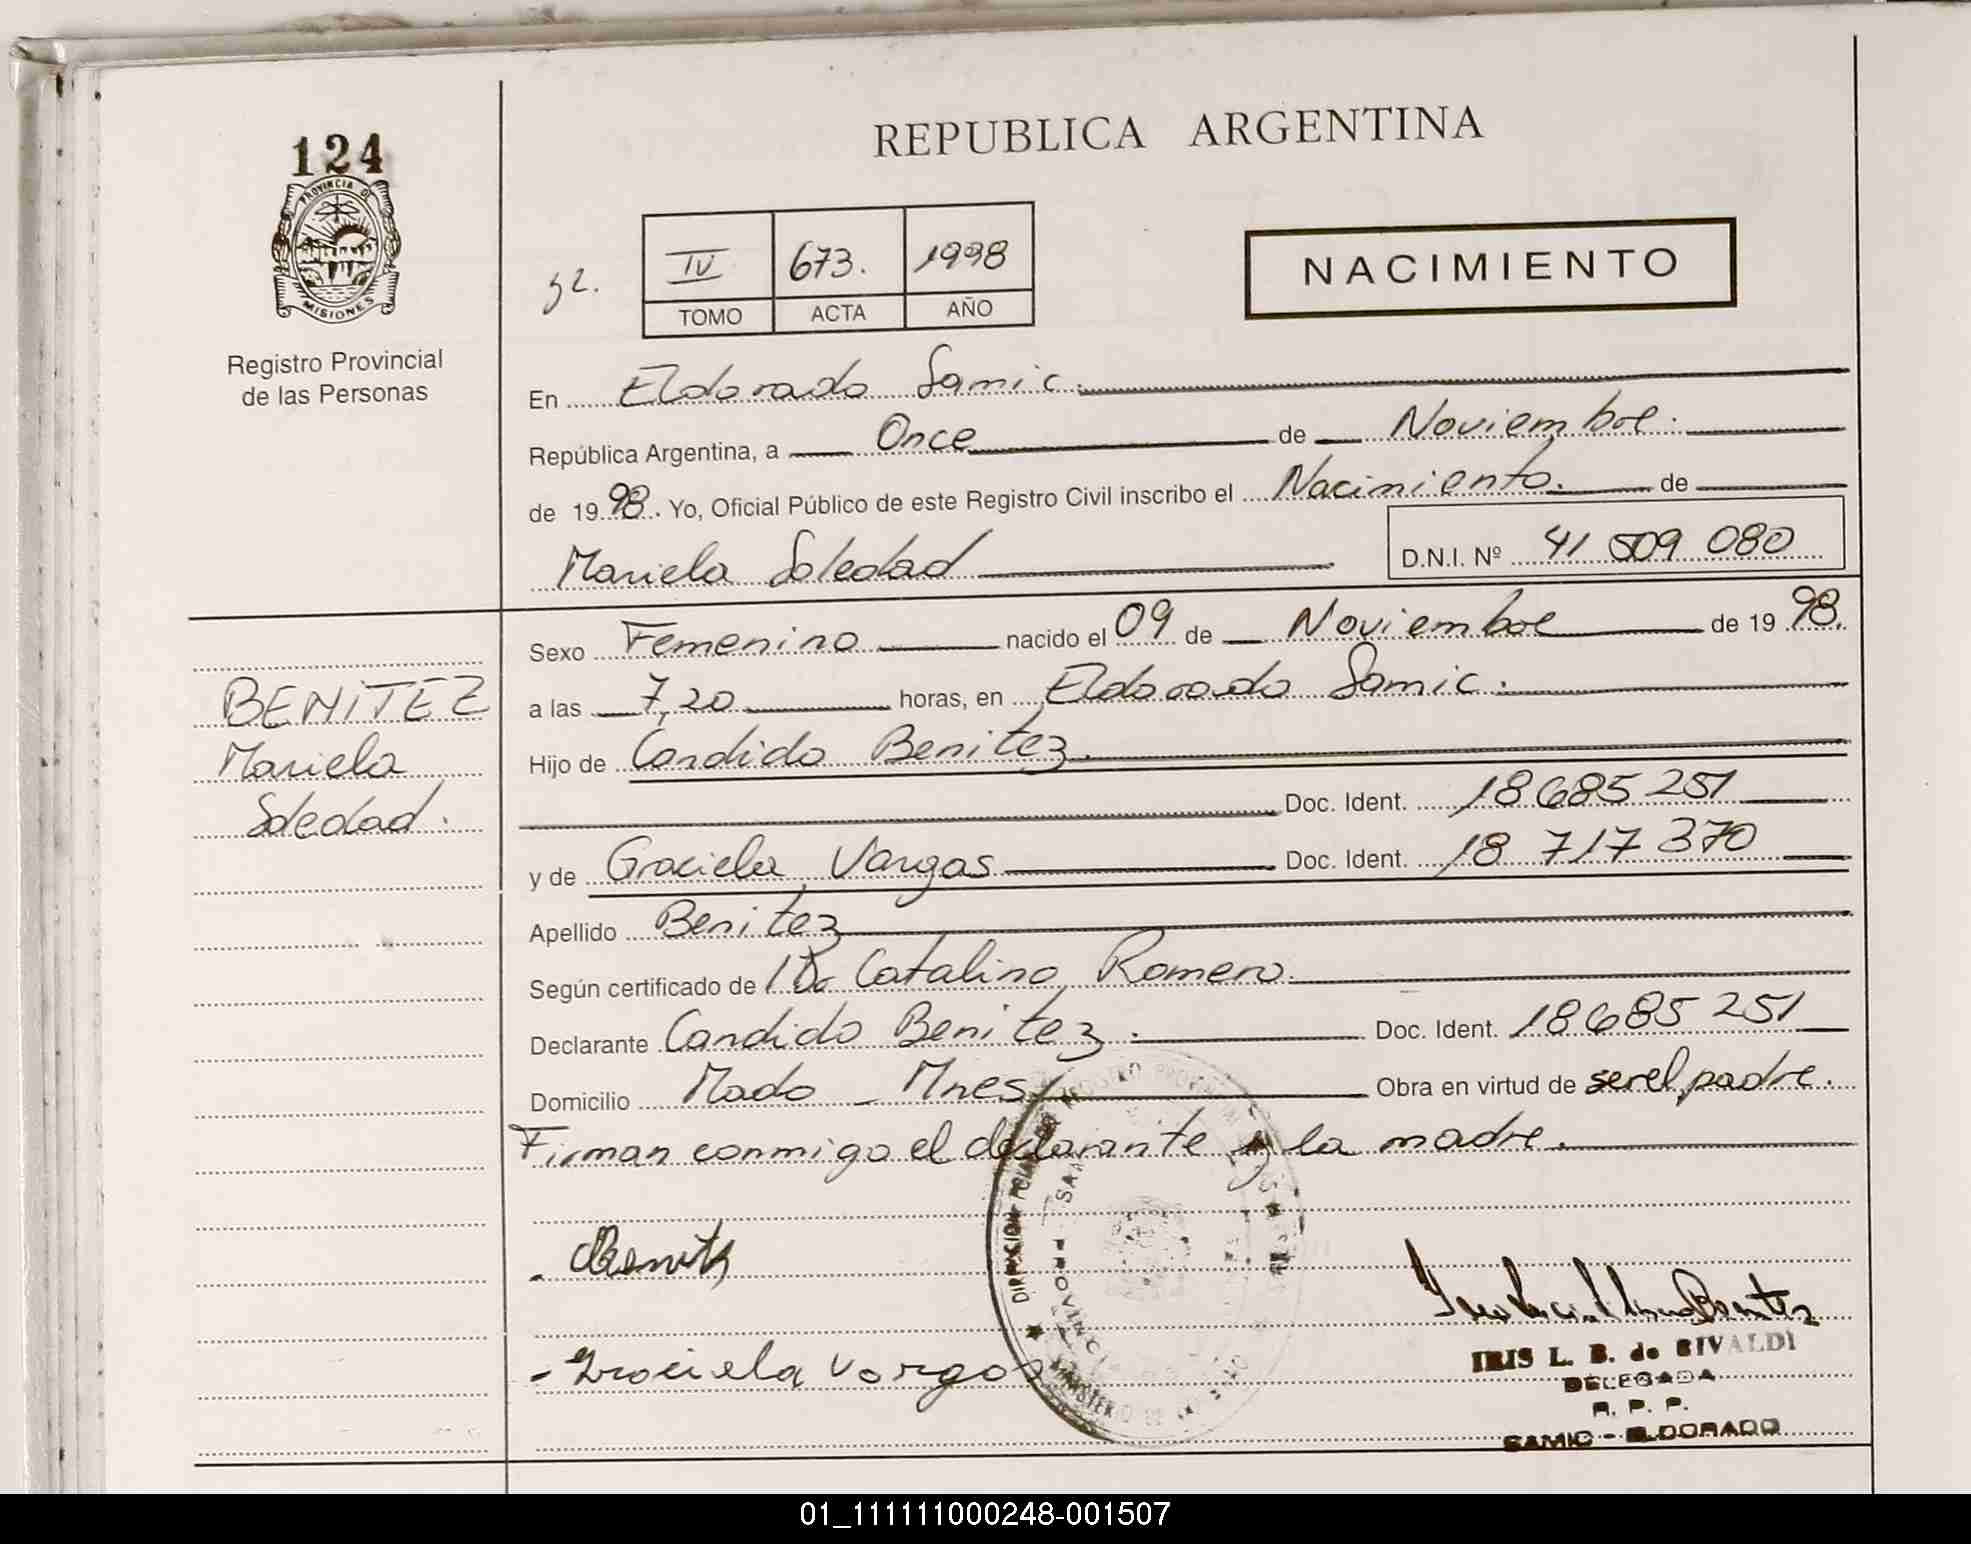 124
PROVINCIA DE
MISIONES
Registro Provincial
de las Personas
REPUBLICA ARGENTINA
52.
IV 673. 1998
TOMO ACTA AÑO
NACIMIENTO
En Eldorado Samic.
República Argentina, a Once de Noviembre.
de 1998. Yo, Oficial Público de este Registro Civil inscribo el Nacimiento. de
Mariela Soledad D.N.I. Nº 41 509 080
BENITEZ
Mariela
Soledad.
Sexo Femenino nacido el 09 de Noviembre de 1998.
a las 7,20 horas, en Eldorado Samic.
Hijo de Candido Benitez.
Doc. Ident. 18685251
y de Graciela Vargas Doc. Ident. 18 717 370
Apellido Benitez
Según certificado de Catalino Romero.
Declarante Candido Benitez. Doc. Ident. 18685 251
Domicilio Mado - Mnes Obra en virtud de ser el padre.
Firman conmigo el declarante y la madre.
Benitez
- Graciela Vargas
IRIS L. B. de RIVALDI
DELEGADA
R. P. P.
SAMIC - ELDORADO
01_111111000248-001507